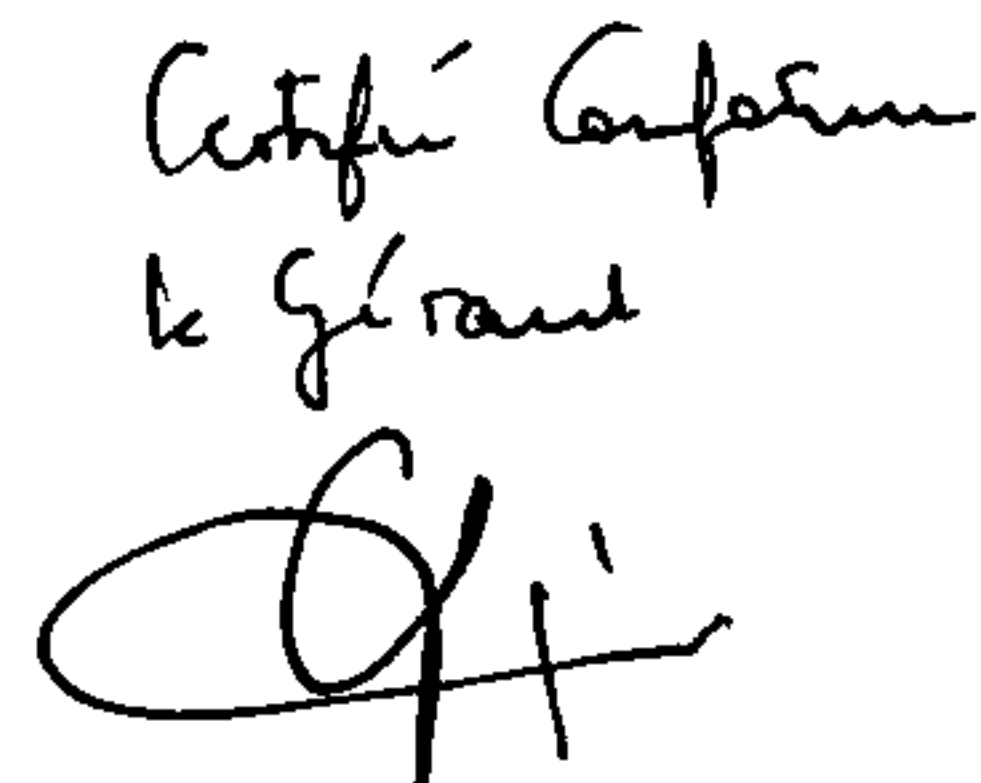 Certifié Conforme
le Gérant